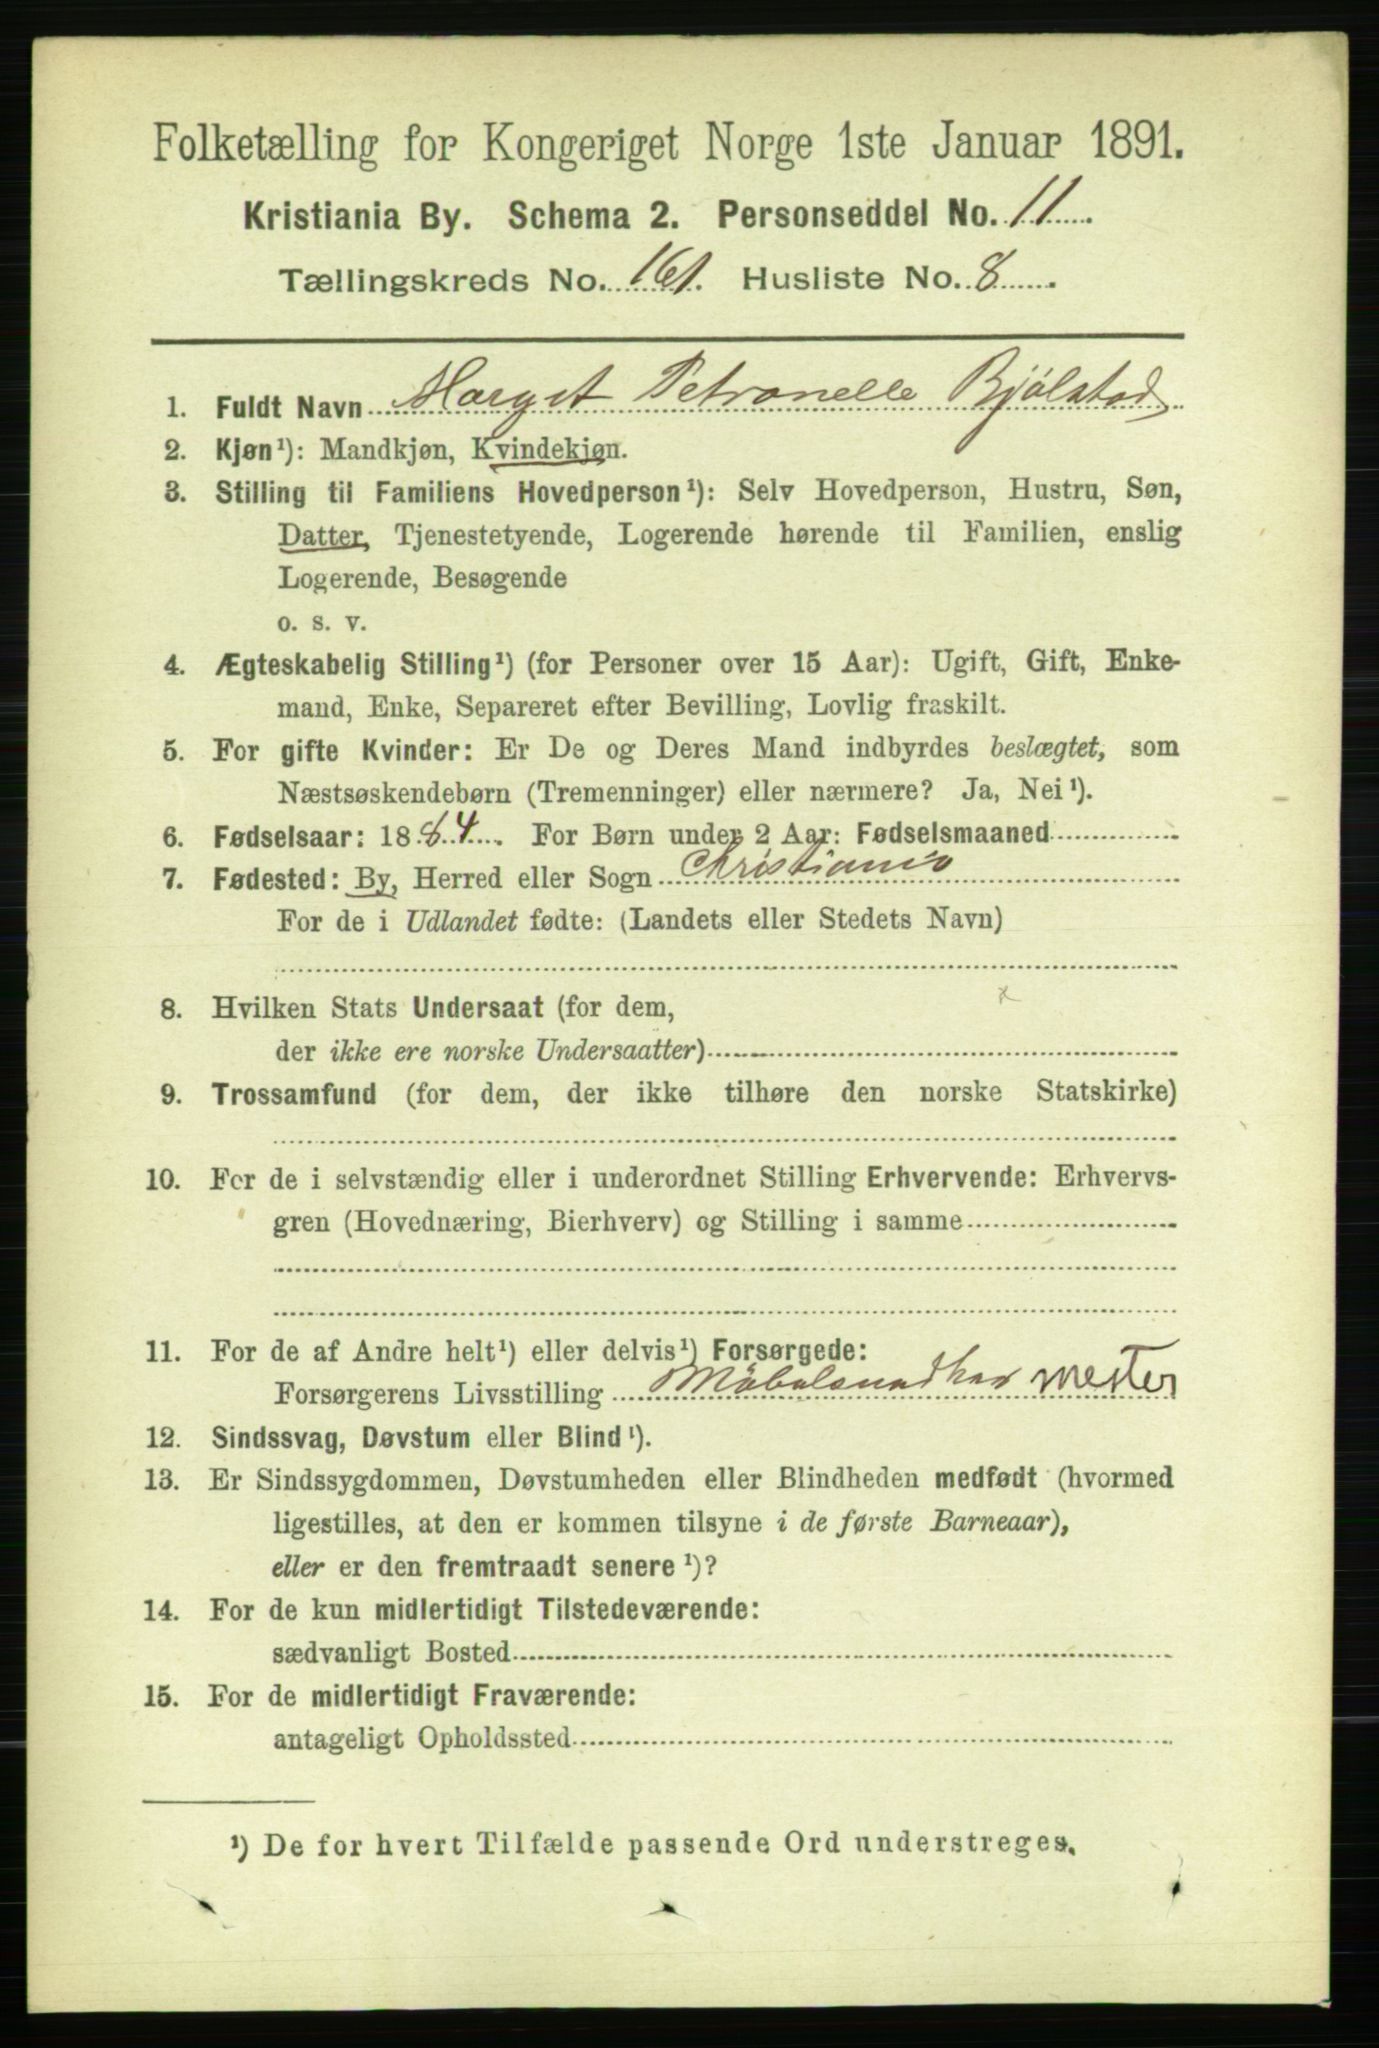 Folketælling for Kongeriget Norge 1ste Januar 1891.
Kristiania By. Schema 2. Personseddel No. 11
Tællingskreds No. 161. Husliste No. 8
1. Fuldt Navn Margit Petronelle Bjölstad
2. Kjøn¹): Mandkjøn, Kvindekjøn.
3. Stilling til Familiens Hovedperson¹): Selv Hovedperson, Hustru, Søn,
Datter, Tjenestetyende, Logerende hørende til Familien, enslig
Logerende, Besøgende
o. s. v.
4. Ægteskabelig Stilling¹) (for Personer over 15 Aar): Ugift, Gift, Enke-
mand, Enke, Separeret efter Bevilling, Lovlig fraskilt.
5. For gifte Kvinder: Er De og Deres Mand indbyrdes beslægtet, som
Næstsøskendebørn (Tremenninger) eller nærmere? Ja, Nei¹).
6. Fødselsaar: 1884. For Børn under 2 Aar: Fødselsmaaned
7. Fødested: By, Herred eller Sogn Christiania
For de i Udlandet fødte: (Landets eller Stedets Navn)
8. Hvilken Stats Undersaat (for dem,
der ikke ere norske Undersaatter)
9. Trossamfund (for dem, der ikke tilhøre den norske Statskirke)
10. For de i selvstændig eller i underordnet Stilling Erhvervende: Erhvervs-
gren (Hovednæring, Bierhverv) og Stilling i samme
11. For de af Andre helt¹) eller delvis¹) Forsørgede:
Forsørgerens Livsstilling mester
12. Sindssvag, Døvstum eller Blind¹).
13. Er Sindssygdommen, Døvstumheden eller Blindheden medfødt (hvormed
ligestilles, at den er kommen tilsyne i de første Barneaar),
eller er den fremtraadt senere¹)?
14. For de kun midlertidigt Tilstedeværende:
sædvanligt Bosted
15. For de midlertidigt Fraværende:
antageligt Opholdssted
¹) De for hvert Tilfælde passende Ord understreges.